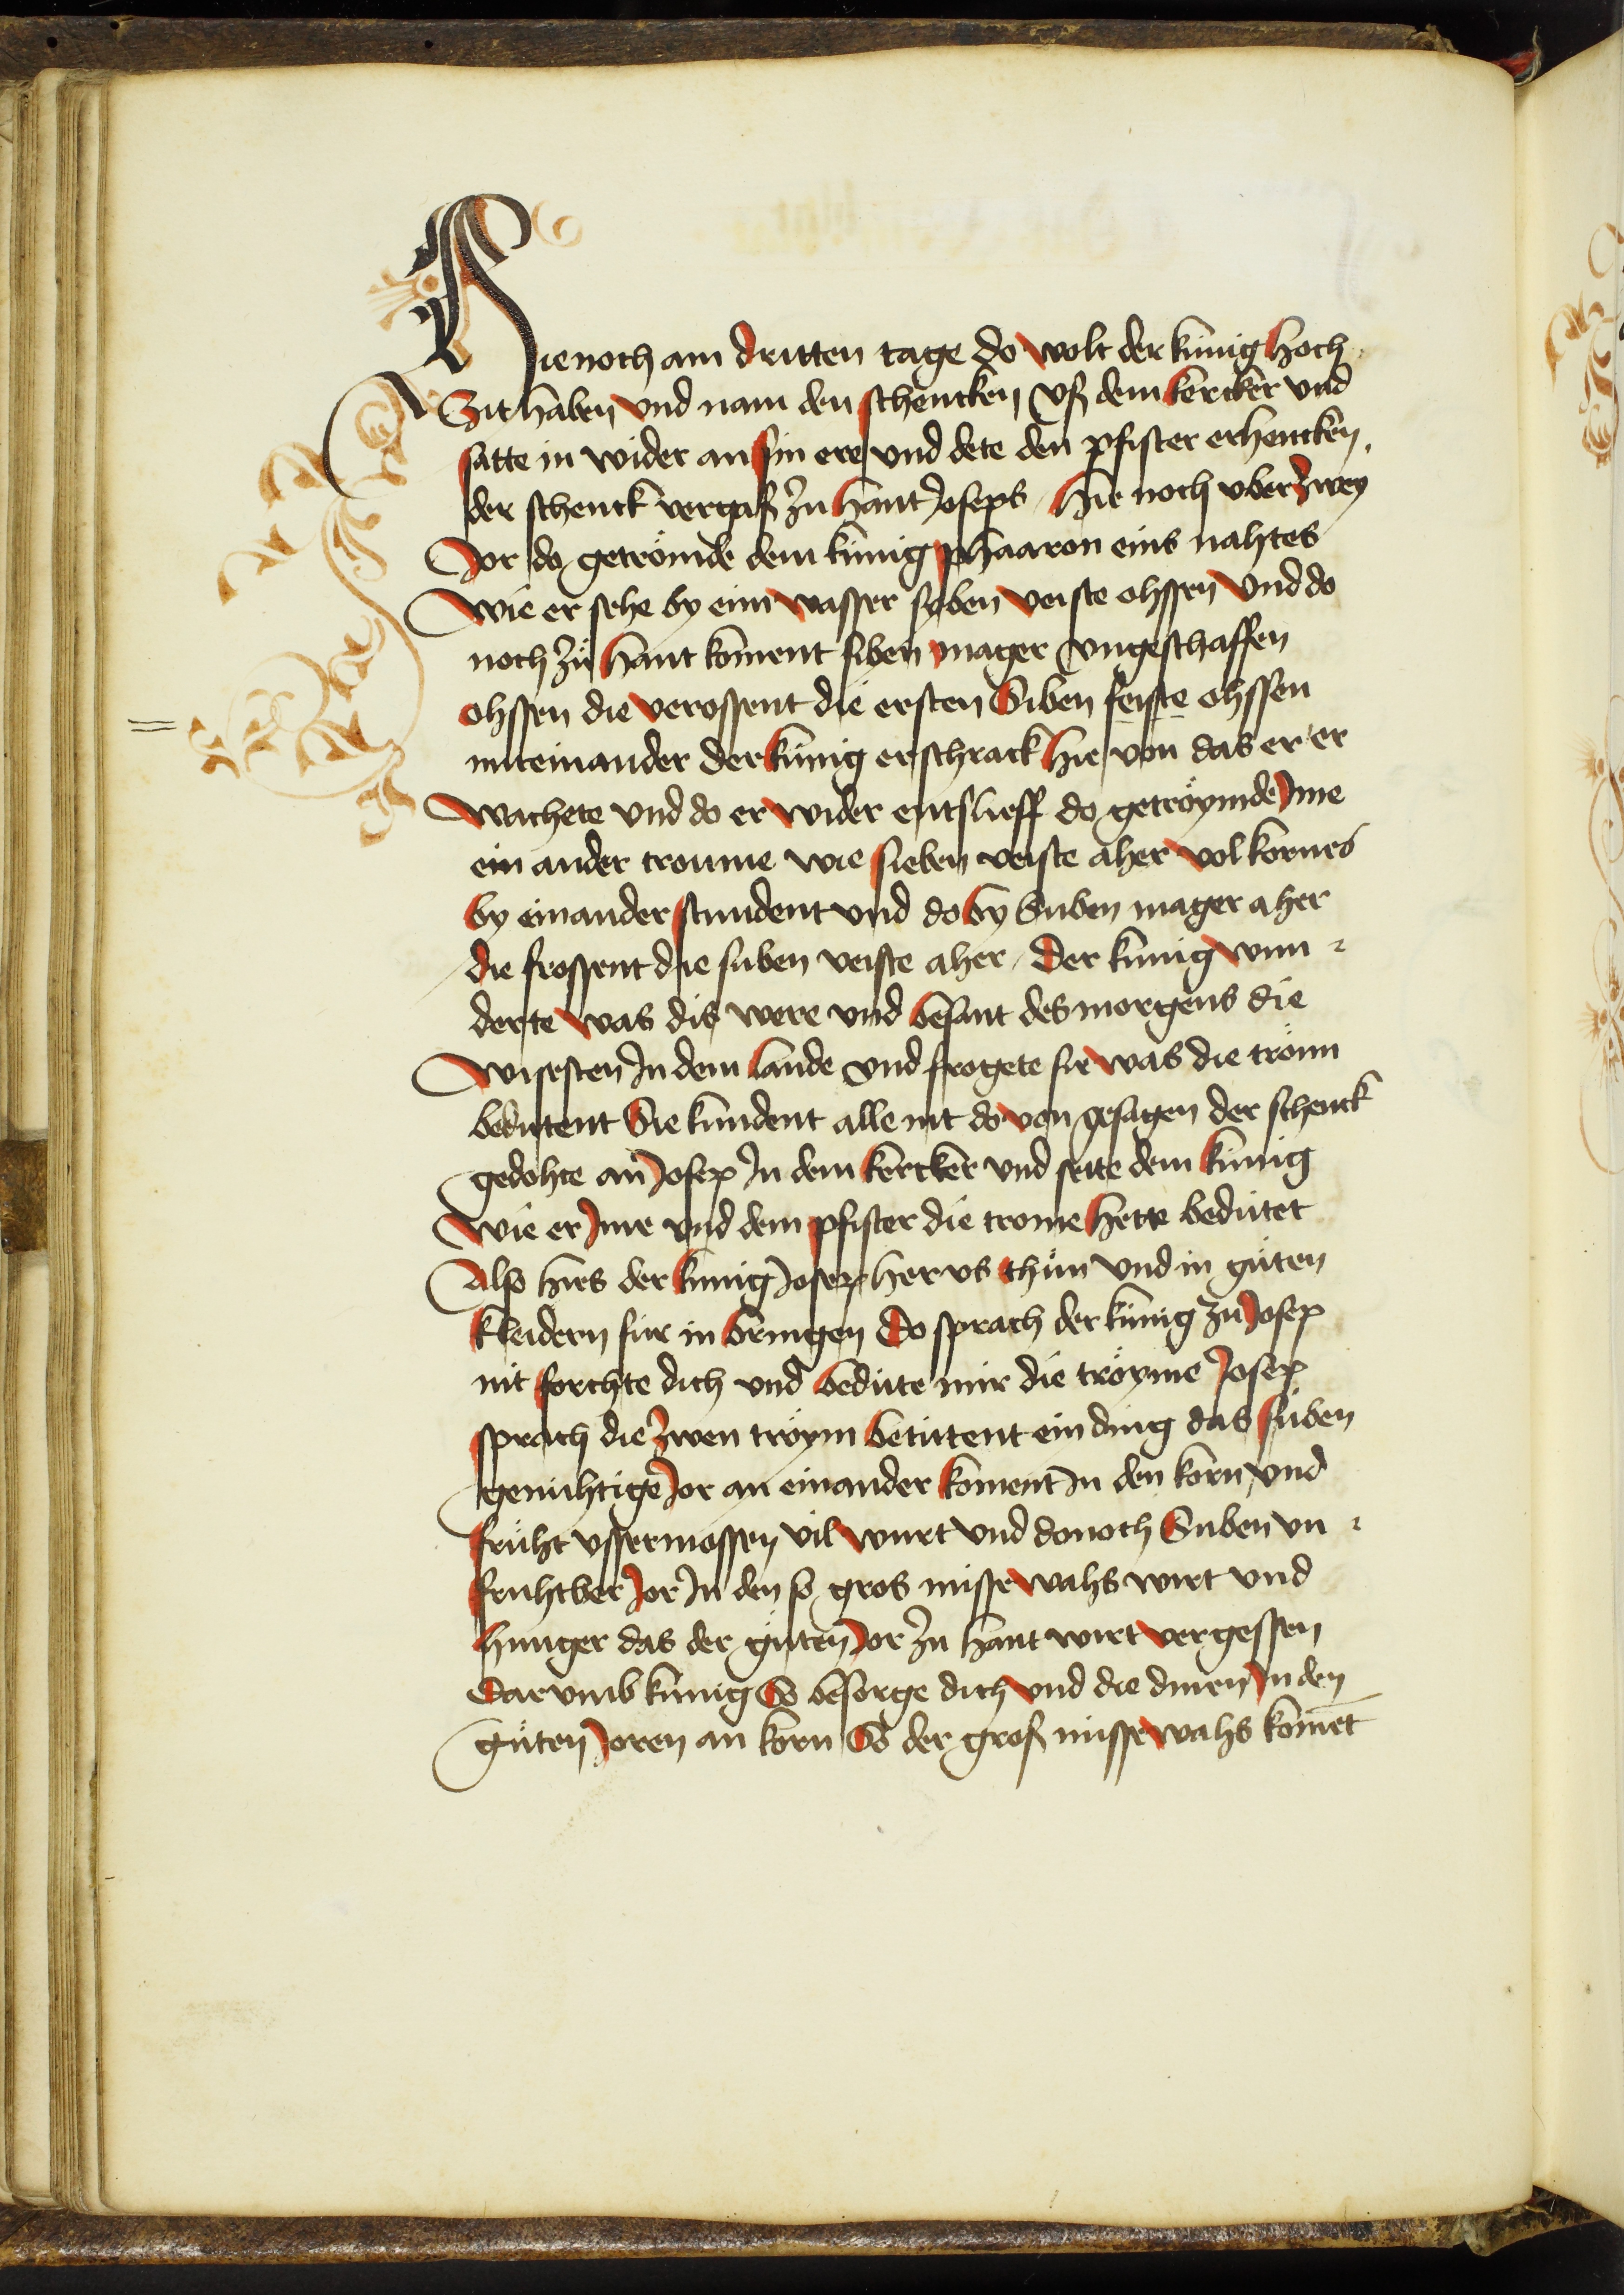 Hie noch am dritten tage do wolt der kúnig hoch
Zit haben vnd nam den schencken vß dem kercker vnd
satte in wider an sin ere vnd dete den pfister erhencken.
der schenck vergaß zu hant Joseps Hie noch vber zwey
Jor do getrömde dem kúnig phaaron eins nahtes
Wie er sehe by eim wasser syben veiste ohssen vnd do
noch zů hant koment siben mager vngeschaffen
ohssen die verossent die ersten Siben feiste ohssen
miteinander der kúnig erschrack hie von das er er
wachete vnd do er wider entslieff do getröymde Jme
ein ander troume wie sieben veiste aher vol kornes
by einander stundent vnd do by Suben mager aher
die frossent die suben veiste aher / der kúnig wun
derte was dis were vnd besant des morgens die
Wisesten Jn dem lande vnd frogete sie was die tröim
bedutent Sie kundent alle nit do von gesagen der schenck
gedohte an Josep Jn dem kercker vnd seite dem kúnig
Wie er Jme vnd dem pfister die trome hette bedútet
Also hies der kúnig Josep her vs thůn vnd in gůten
kleidern fúr in bringen do sprach der kúnig zů Josep
nit forchte dich vnd bedúte mir die tröyme Josep
sprach die zwen tröym betútent ein ding das súben
genuhtige Jor an einander koment Jn den korn vnd
fruht vssermossen vil wurt vnd donoch Suben vn
fruhtber Jor Jn den so gros misse wahs wirt vnd
hunger das der gůten Jor zů hant wirt vergessen
dar vmb kúnig So besorge dich vnd die dinen Jn den
gůten Joren an korn So der groß misse wahs komēt